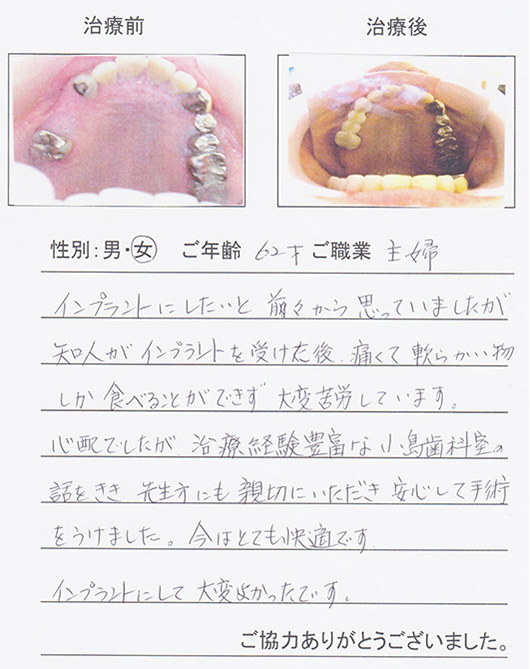 治療前
治療後
性別：男・女 ご年齢 62才 ご職業 主婦
インプラントにしたいと 前々から 思っていましたが
知人が インプラントを受けた後、痛くて 軟らかい物
しか 食べることができず 大変苦労しています。
心配でしたが、治療経験豊富な 小島歯科室の
話をきき 先生方にも 親切にいただき 安心して手術
をうけました。今はとても快適です
インプラントにして 大変よかったです。
ご協力ありがとうございました。